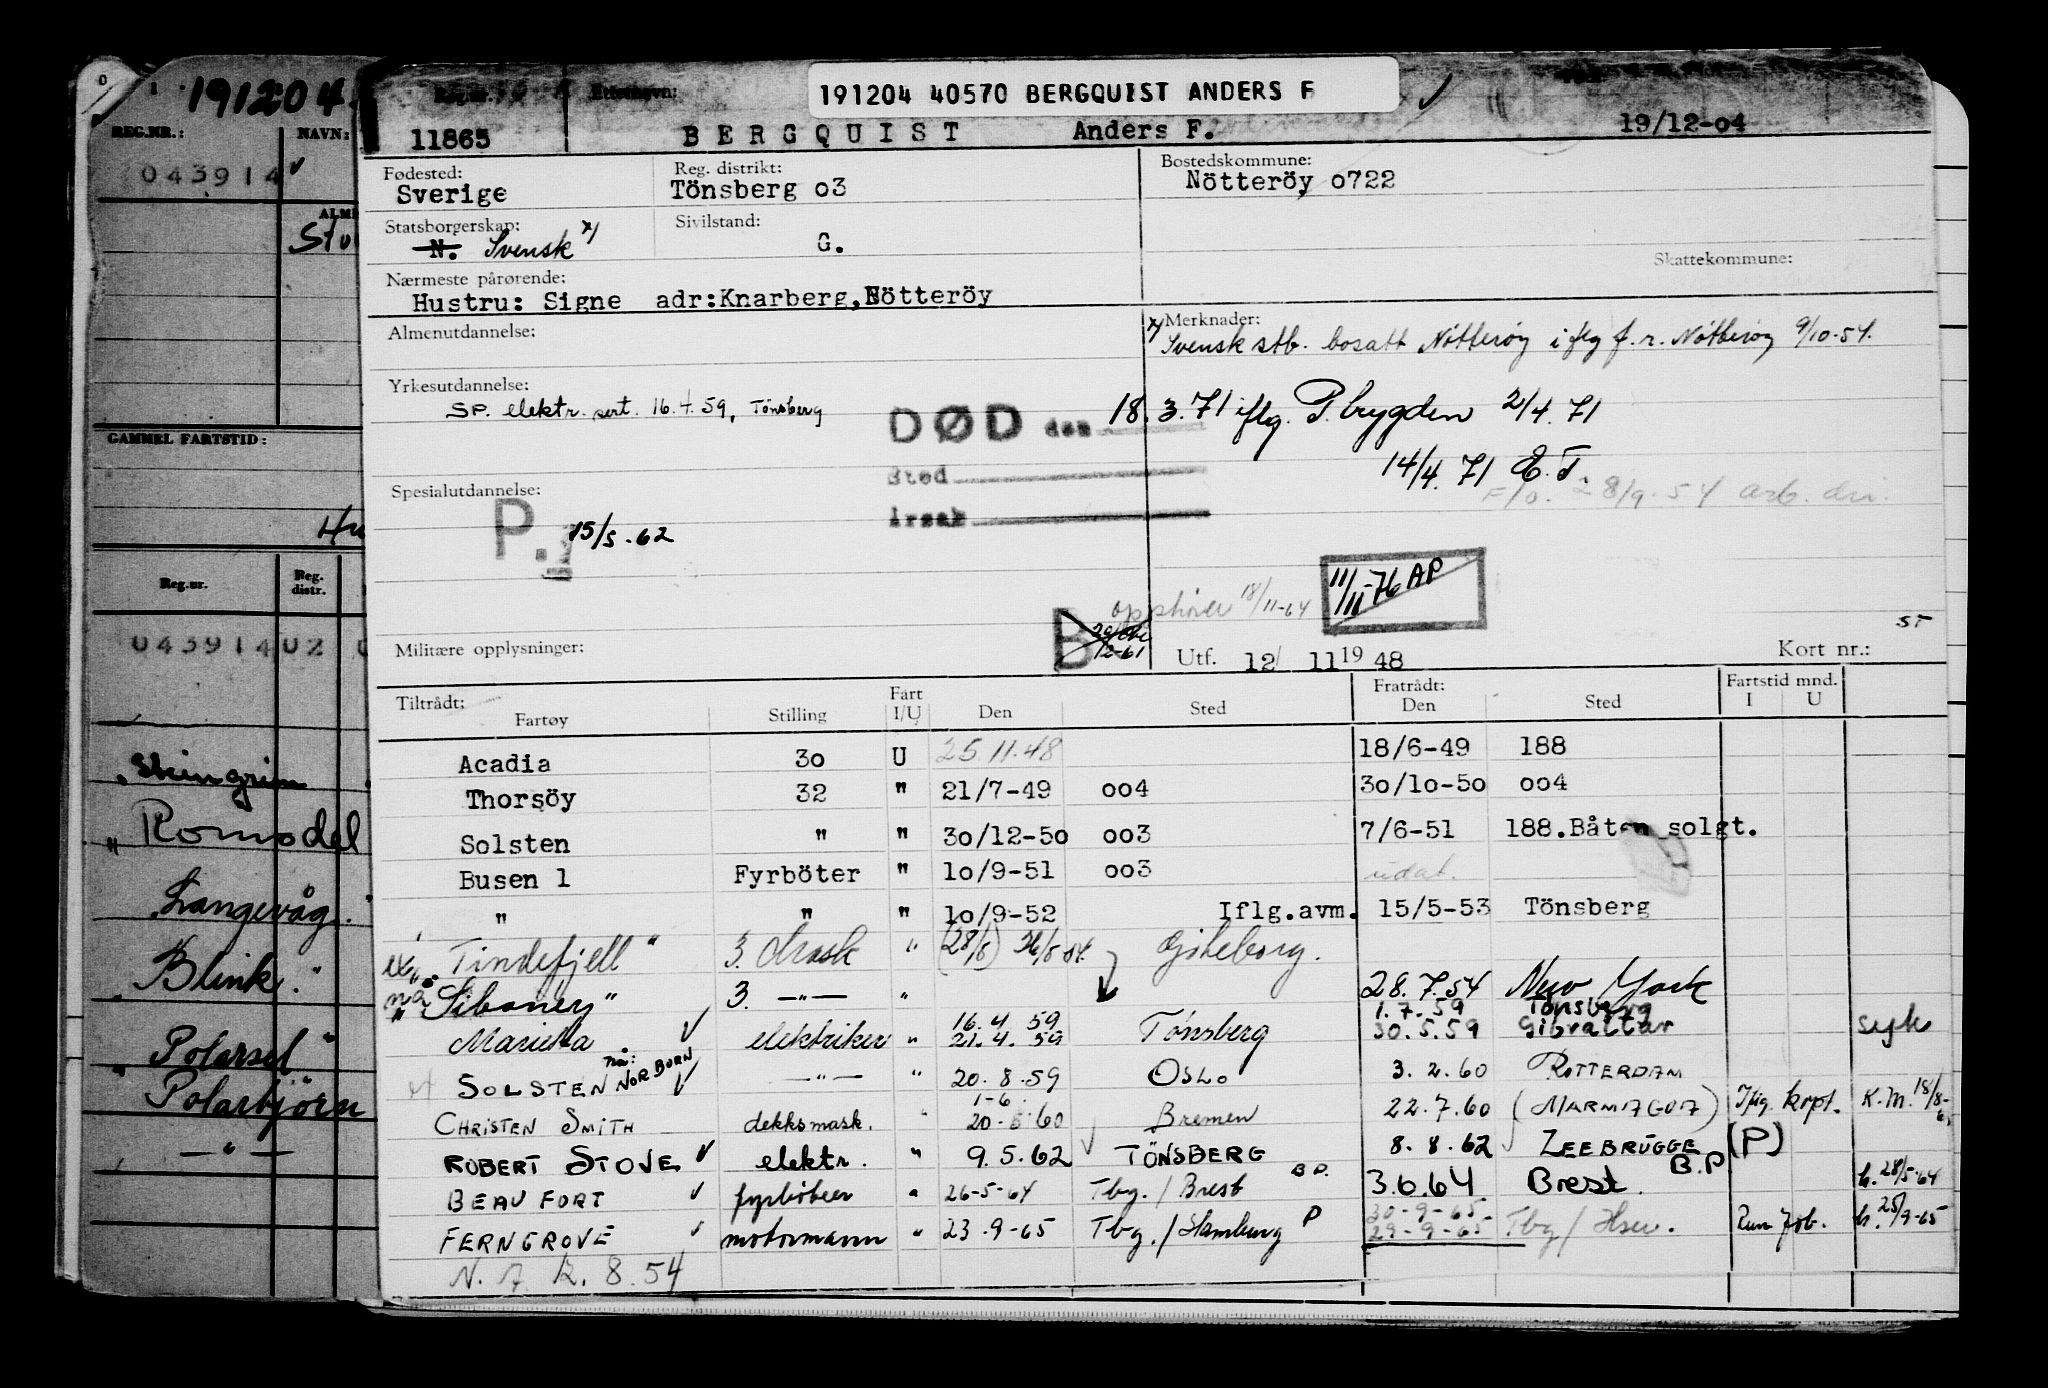 191204
REG.NR.: NAVN:
043914
GAMMEL FARTSTID:
Reg.nr. Reg. distr.
04391402
Romsdal
Langevåg
Blink
Polarsel
Polarbjörn
— " —
191204 40570 BERGQUIST ANDERS F
11865 BERGQUIST Anders F. 19/12-04
Fødested: Reg. distrikt: Bostedskommune:
Sverige Tönsberg 03 Nötteröy 0722
Statsborgerskap: Sivilstand:
N. Svensk x) G.
Skattekommune:
Nærmeste pårørende:
Hustru: Signe adr:Knarberg, Nötteröy
Almenutdannelse: x) Merknader:
Svensk stb. bosatt Nötteröy iflg f.r. Nötteröy 9/10-54.
Yrkesutdannelse:
SP. elektr. sert. 16.4.59, Tönsberg
DØD den 18.3.71 iflg. 2/4.71
Sted 14/4.71 E.T.
Årsak 28/9.54 arb.
Spesialutdannelse:
P. 15/5.62
opphører 18/11-64 11/11-76 AP
B
Militære opplysninger: Utf. 12/ 11 19 48 Kort nr.: ST
Tiltrådt: Fratrådt: Fartstid mnd.
Fartøy Stilling Fart I/U Den Sted Den Sted I U
Acadia 30 U 25.11.48 18/6-49 188
Thorsöy 32 " 21/7-49 004 30/10-50 004
Solsten " " 30/12-50 003 7/6-51 188.Båten solgt.
Busen 1 Fyrböter " 10/9-51 003 udat.
" " " 10/9-52 Iflg.avm. 15/5-53 Tönsberg
ex. "Tindefjell" 3. mask " (28/8) Göteborg.
nå "Siboney" 3. —"— " 28.7.54 New York
1.7.59 Tönsberg
Marietta elektriker " 16.4.59 21.4.59 Tönsberg 30.5.59 Gibraltar syk
SOLSTEN nå: NORBORN —"— " 20.8.59 OSLO 3.2.60 ROTTERDAM
CHRISTEN SMITH dekksmask. " 1-6 20-5-60 Bremen 22.7.60 (MARMAGOA) Iflg. kapt. K.M. 18/8-
ROBERT STOVE elektr. " 9.5.62 TÖNSBERG 8.8.62 ZEEBRÜGGE (P)
BEAUFORT fyrböter " 26-5-64 Tbg./Brest B.P. 3.6.64 Brest. B.P 28/5-64
FERNGROVE motormann " 23.9-65 Tbg./Hamburg P 30-9-65 29-9-65 Tbg/ 25/9-65
N.A. 12.8.54